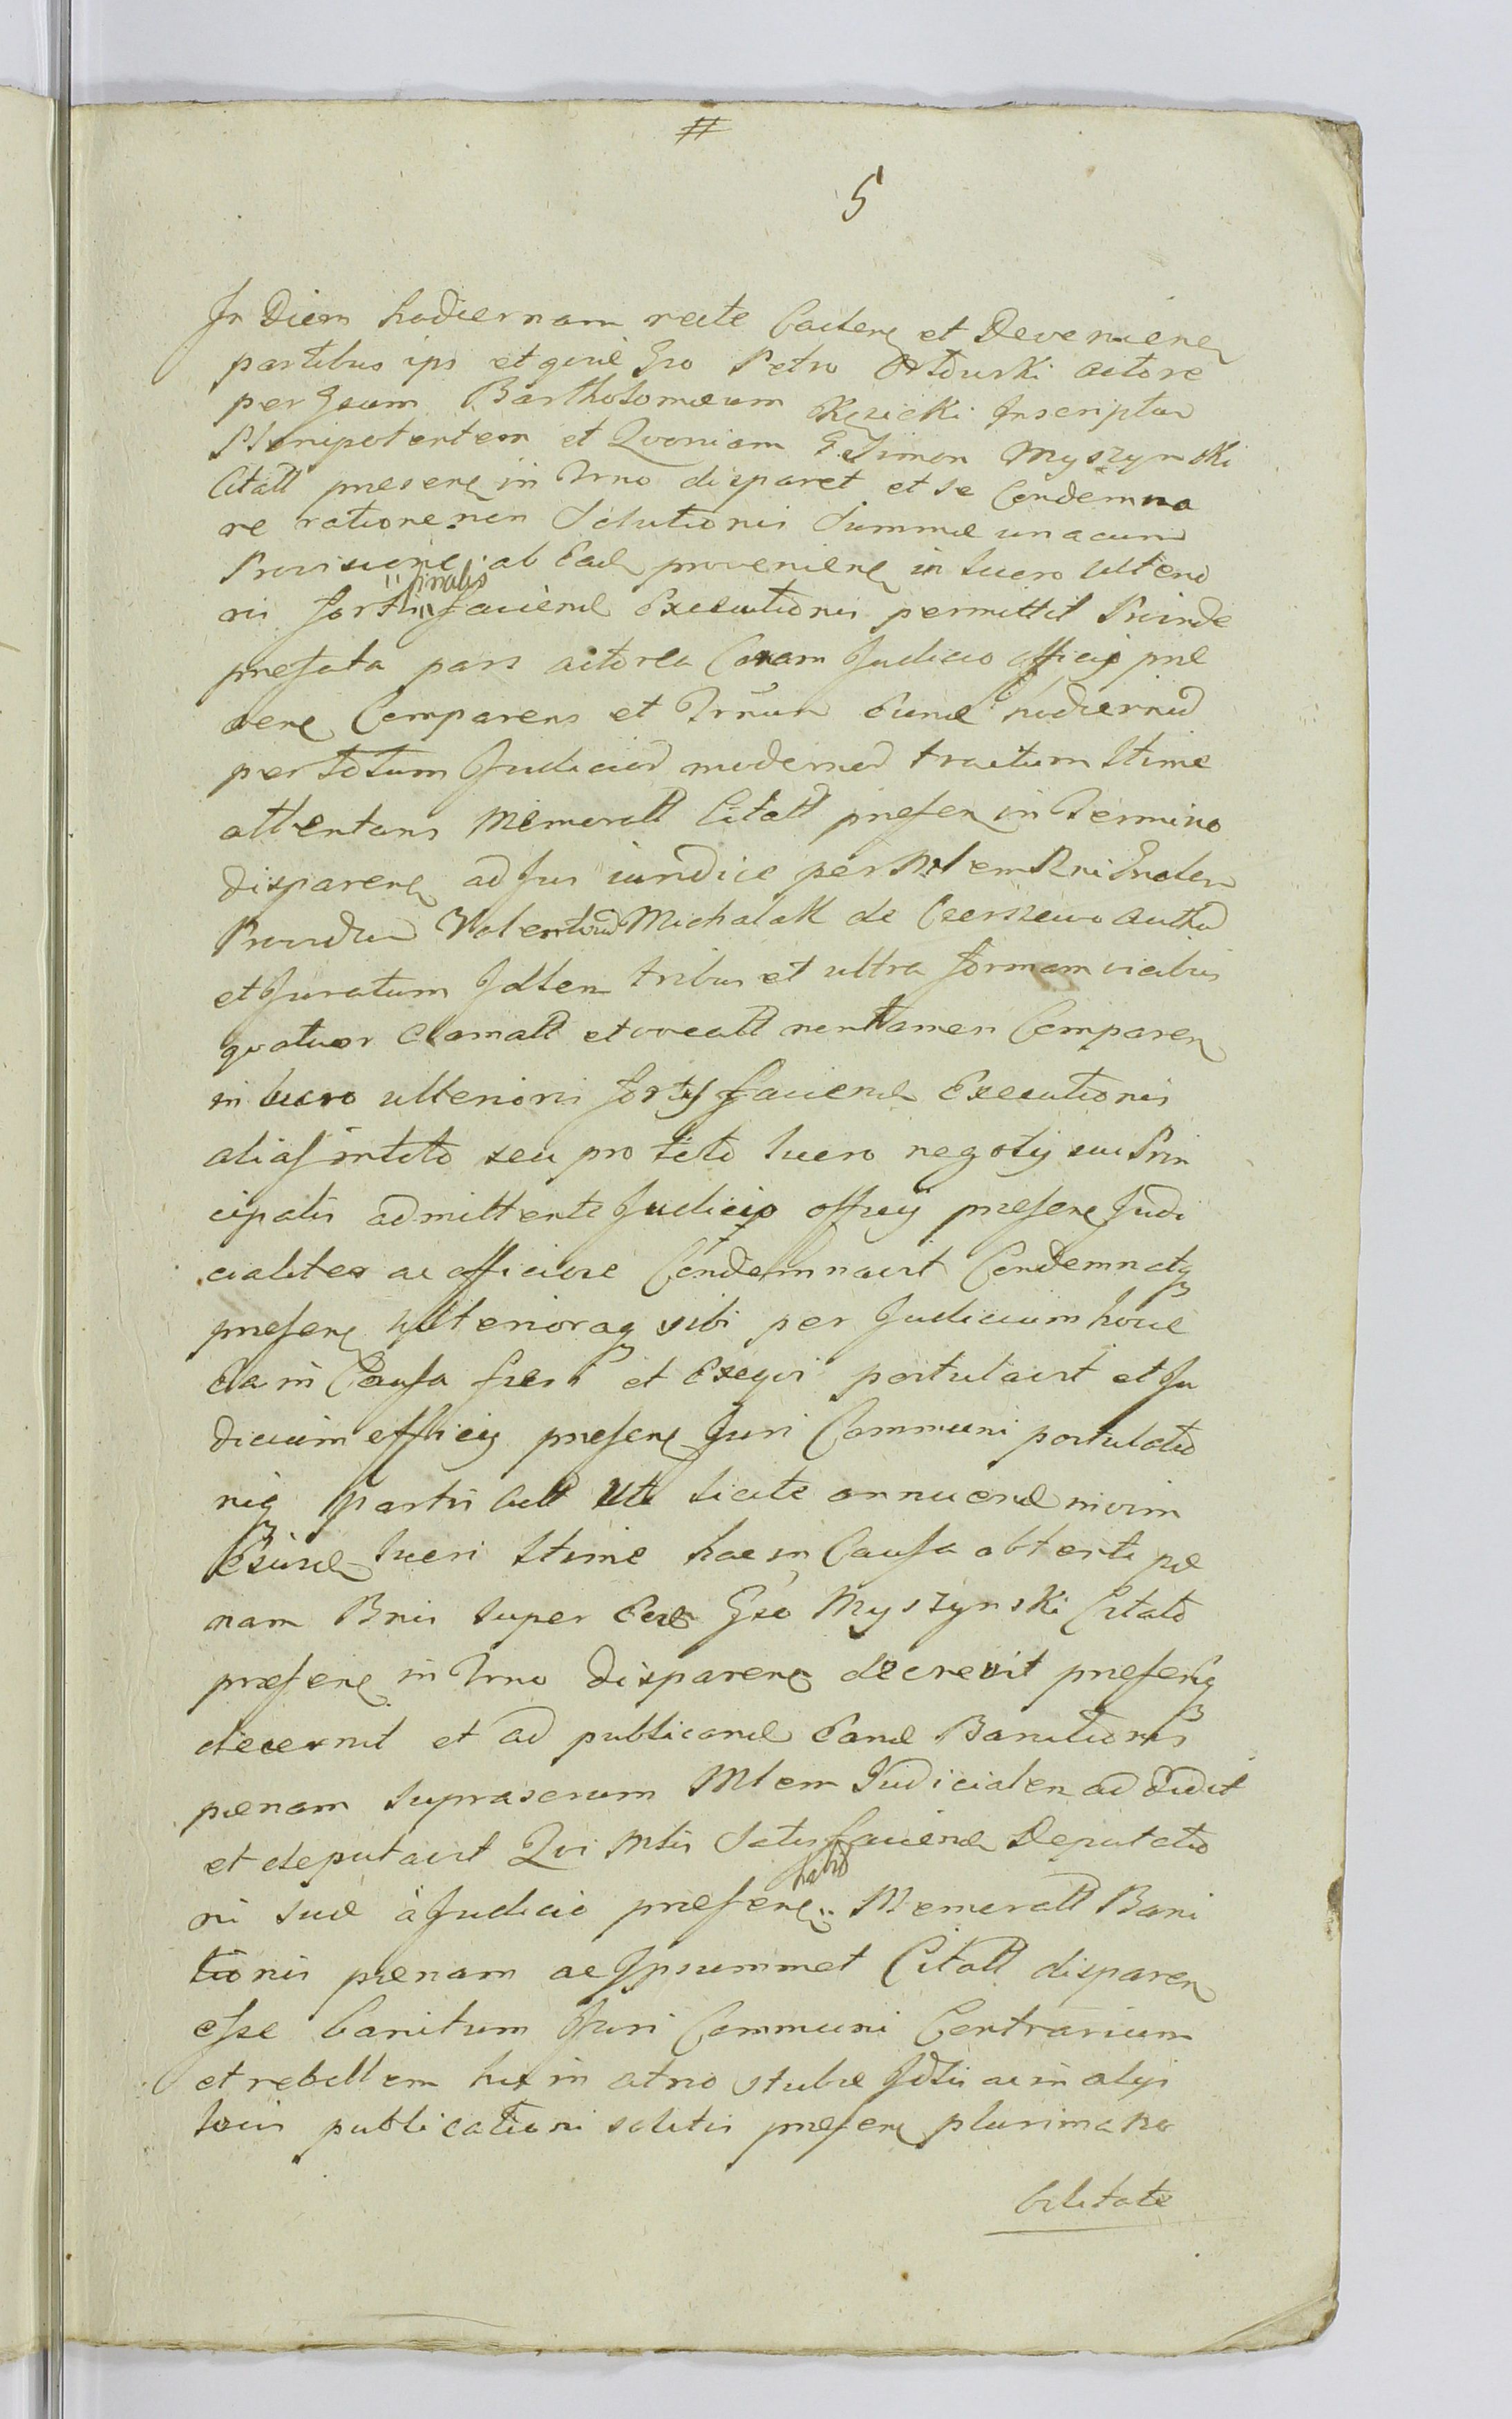 #
5
In Diem hodiernam recte Caden et Devenien
partibus ips et quiē Gso Petro actore
per Gsum Bartholomæum Kęsicki Inscriptu
Plenipotentem et Quoniam G. Simon Myszynski
Citatt presens in Trno disparet et se Condemna
re ratione non Solutionis Summæ una cum
Provisione ab Ead provenien in lucro ulterio
ris fortis finalis faciend Executionis permittit Proinde
præfata pars actorea Coram Judicio officii præ
sen Comparens et Trnum Eund hodiernu
per totum Judiciu modernu tractum Stime
attentans Memoratt Citatt præsen in Termino
disparen ad Jus iuridice per Mlem Rni Gnalem
Providu Valentinu Michalak de Czerszewo Authu
et Juratum Idlem tribus et ultra formam vicibus
quatuor clamatt et vocatt non tamen Comparen
in lucro ulterioris fortis faciend Executionis
alias in toto seu pro toto lucro negotij sui Prin
cipalis admittente Judicio officij præsen Judi
cialiter ac officiose Condemnavit Condemnatq
præsen ulterioraq sibi per Judicium hocce
ea in Causa fieri et Exequi postulavit et Ju
dicium officij præsen Juri Communi postulatio
niq partis licite annuend in vim
lucri Stime hac in Causa obtenti pæ
nam Bnis super Eod Gso Myszynski Citato
præsen in Trno disparen decrevit præsenq
decernit et ad publicand Eand Banitionis
pænam suprascrum Mlem Judicialem addidit
et deputavit Qui Mlis Satisfaciend Deputatio
ni suæ à Judicio præsen hatio Memoratt Bani
tionis pænam ac Ipsummet Citatt disparen
esse banitum Juri Communi Contrarium
et rebellem hic in atrio stubæ Jdlis ac in alijs
locis publicationi solitis præsen plurima no
bilitate